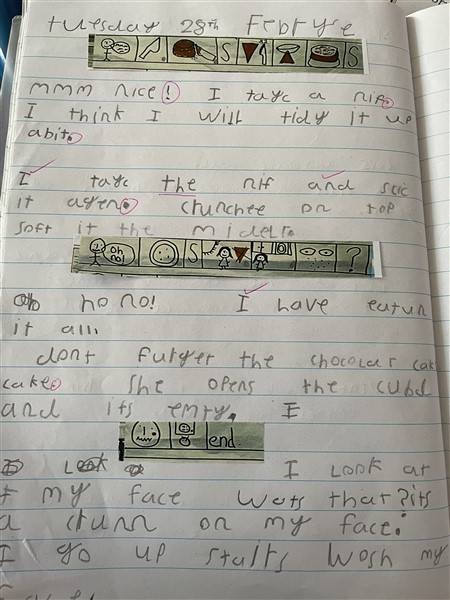 tuesday 28th Februre
S S
mmm nice! I tayc a nif.
I think I will tidy it up
abit.
I tayc the nif and slic
it agen. crunchee on top
soft it the midell.
oh no! S ?
oh no no! I have eatun
it all.
dont furget the chocolat cak
cake. She opens the cubd
and its empty. I
end
Look I Look at
t my face wots that? its
a crum on my face.
I go up stairs wosh my